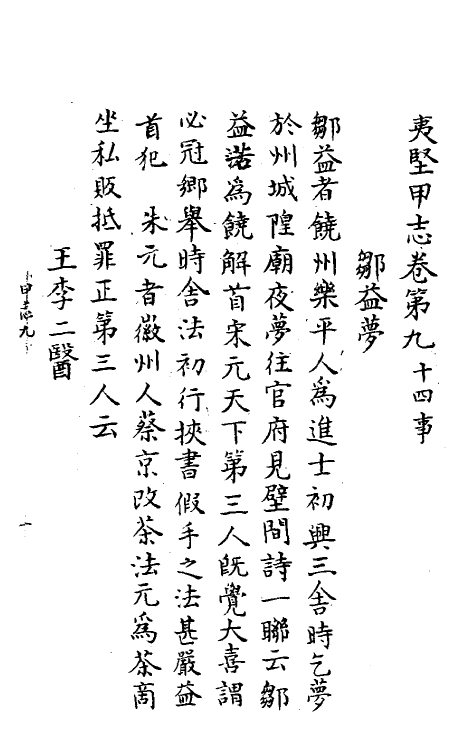 夷堅甲志卷第九 十四事
鄒益夢
鄒益者饒州樂平人爲進士初興三舍時乞夢
於州城隍廟夜夢往官府見壁間詩一聯云鄒
益諾爲饒解首宋元天下第三人旣覺大喜謂
必冠鄉舉時舍法初行挾書假手之法甚嚴益
首犯 朱元者徽州人蔡京改茶法元爲茶商
坐私販抵罪正第三人云
王李二醫
甲志九
一